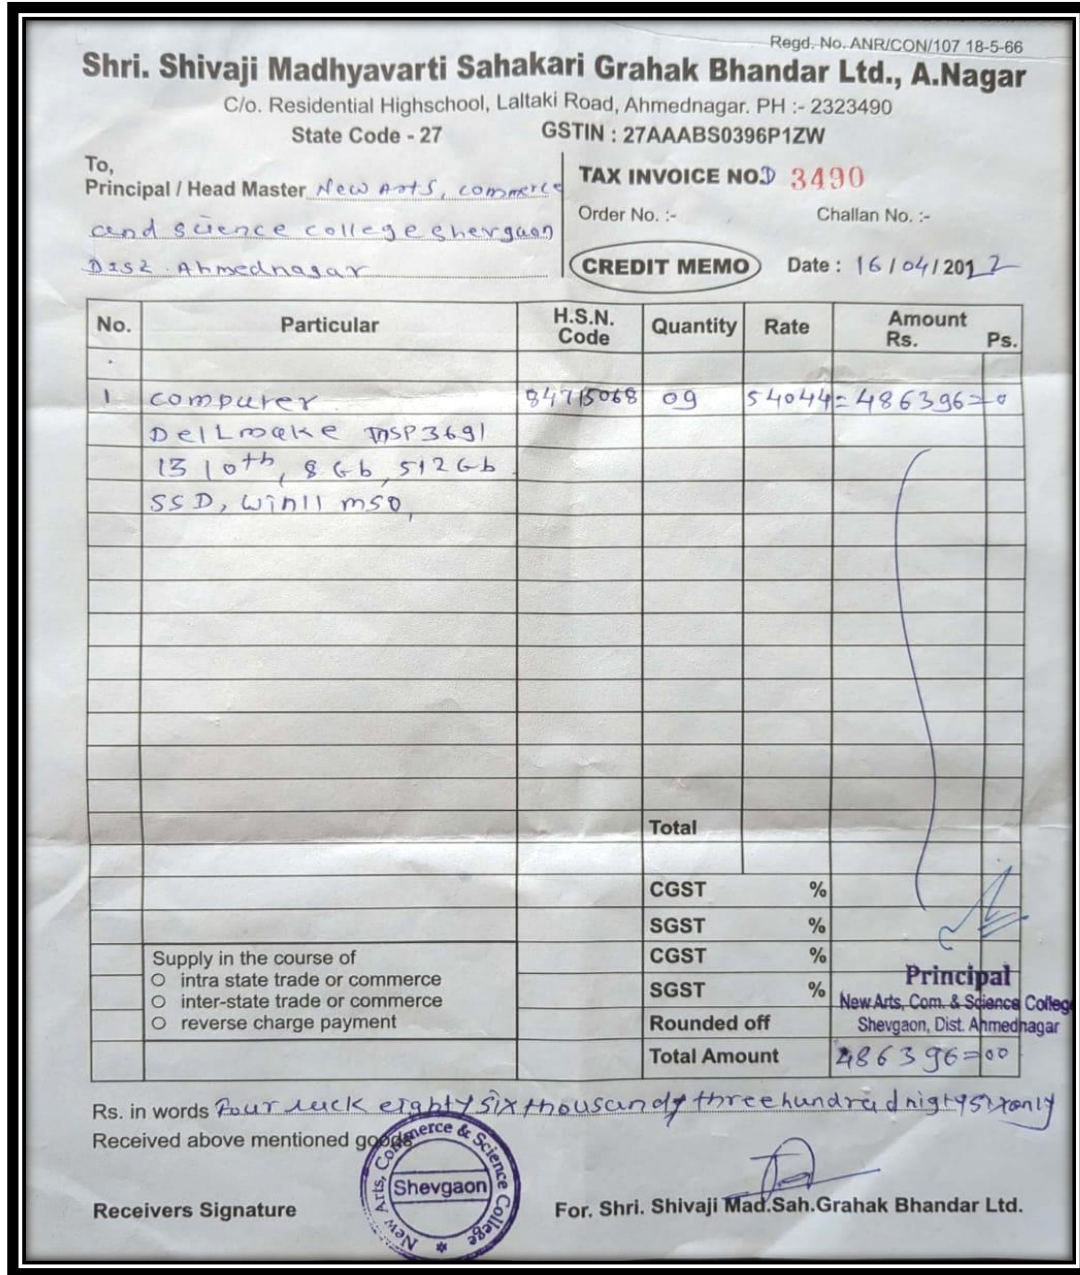 Regd. No. ANR/CON/107 18-5-66
Shri. Shivaji Madhyavarti Sahakari Grahak Bhandar Ltd., A.Nagar
C/o. Residential Highschool, Laltaki Road, Ahmednagar. PH :- 2323490
State Code - 27 GSTIN : 27AAABS0396P1ZW
To,
Principal / Head Master New Arts, commerce
and science college shevgaon
Dist. Ahmednagar
TAX INVOICE NO. D 3490
Order No. :- Challan No. :-
CREDIT MEMO Date : 16/04/2022
No. Particular H.S.N. Code Quantity Rate Amount Rs. Ps.
1 computer 84715068 09 54044= 486396=0
Dell make INSP3691
I3 10th, 8 Gb, 512 Gb
SSD, Win11 mso,
Total
CGST %
SGST %
CGST %
SGST %
Rounded off
Total Amount 486396=00
Supply in the course of
intra state trade or commerce
inter-state trade or commerce
reverse charge payment
Principal
New Arts, Com. & Science College
Shevgaon, Dist. Ahmednagar
Rs. in words Four luck eighty six thousand three hundrad nigty six only
Received above mentioned goods
New Arts, Commerce & Science College
Shevgaon
Receivers Signature For. Shri. Shivaji Mad.Sah.Grahak Bhandar Ltd.